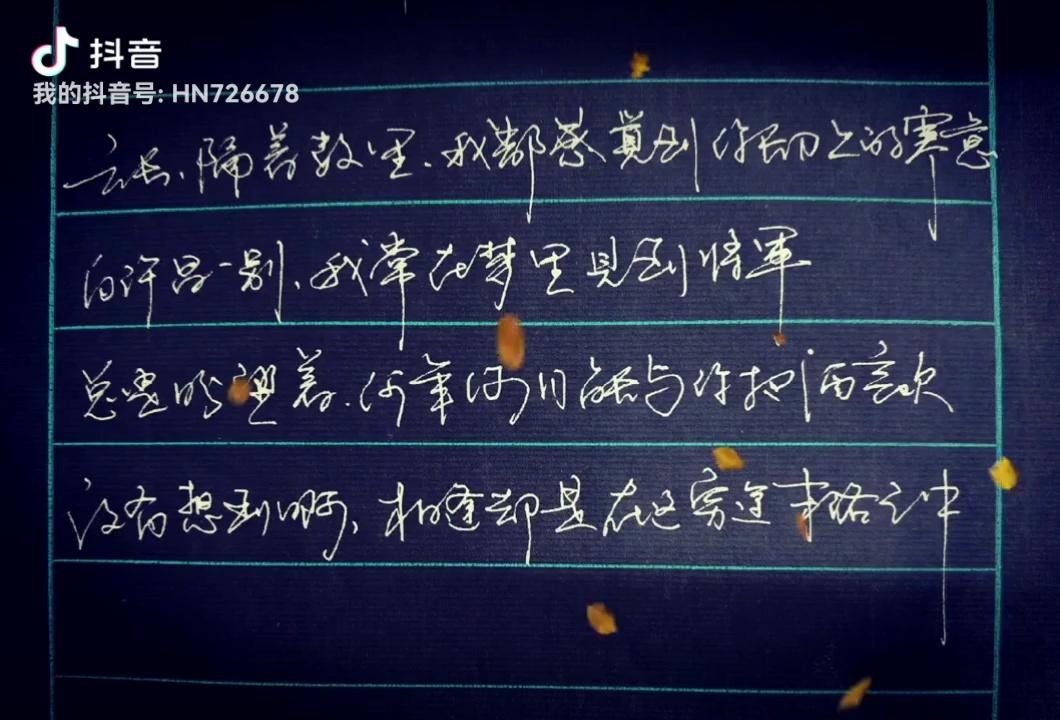 抖音
我的抖音号: HN726678
云长、隔着数里、我都感觉到你背上的寒意
自许昌一别、我常在梦里见到将军
总是盼望着、何年何月能与你把酒言欢
没有想到啊、相逢却是在这穷途末路之中